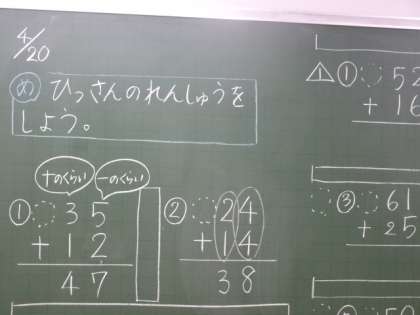 4/20
め ひっさんのれんしゅうを
しよう。
十のくらい 一のくらい
① 35
+12
47
② 24
+14
38
△1 ① 52
+16
③ 61
+25